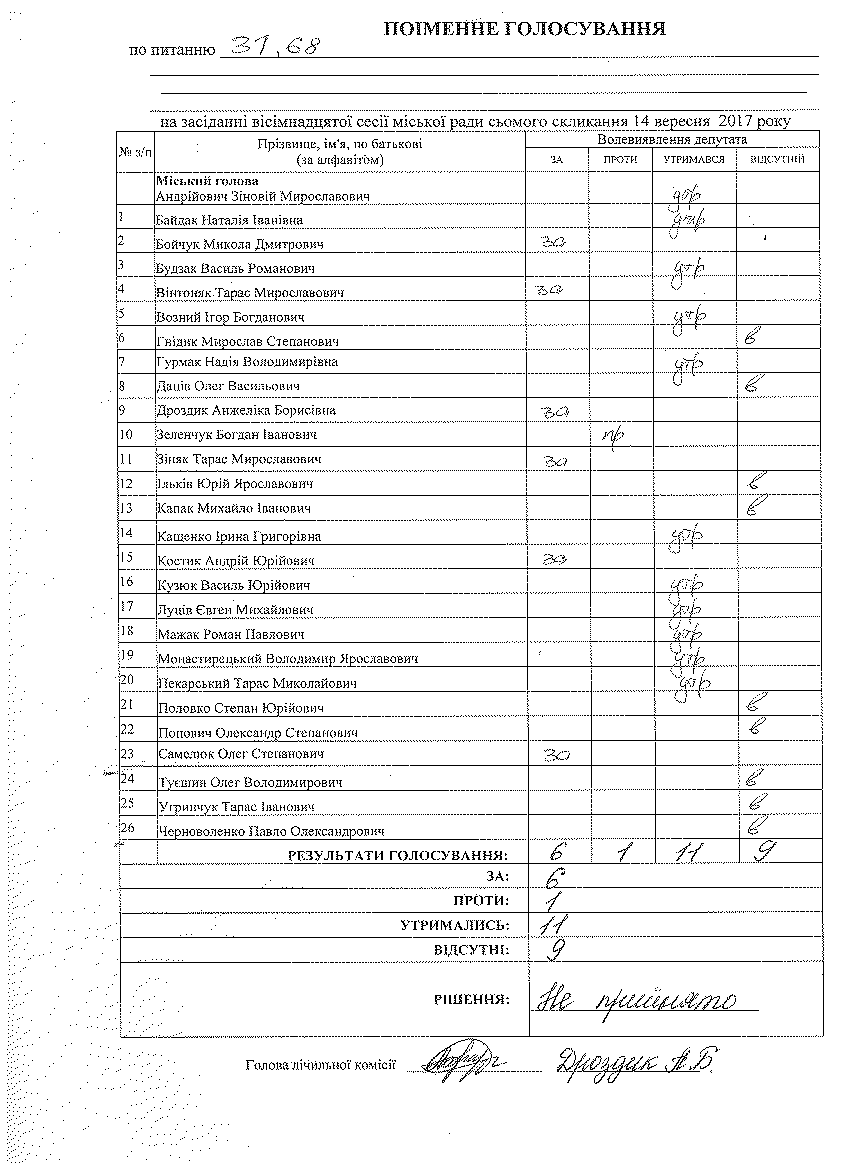 ПОІМЕННЕ ГОЛОСУВАННЯ
по питанню 31,68
на засіданні вісімнадцятої сесії міської ради сьомого скликання 14 вересня 2017 року
№ з/п Прізвище, ім'я, по батькові (за алфавітом) Волевиявлення депутата
ЗА ПРОТИ УТРИМАВСЯ ВІДСУТНІЙ
Міський голова
Андрійович Зіновій Мирославович утр
1 Байдак Наталія Іванівна утр
2 Бойчук Микола Дмитрович за
3 Будзак Василь Романович утр
4 Вінтоняк Тарас Мирославович за
5 Возний Ігор Богданович утр
6 Гвідик Мирослав Степанович в
7 Гурмак Надія Володимирівна утр
8 Даців Олег Васильович в
9 Дроздик Анжеліка Борисівна за
10 Зеленчук Богдан Іванович пр
11 Зіняк Тарас Мирославович за
12 Ільків Юрій Ярославович в
13 Капак Михайло Іванович в
14 Кащенко Ірина Григорівна утр
15 Костик Андрій Юрійович за
16 Кузюк Василь Юрійович утр
17 Луців Євген Михайлович утр
18 Мажак Роман Павлович утр
19 Монастирецький Володимир Ярославович утр
20 Пекарський Тарас Миколайович утр
21 Половко Степан Юрійович в
22 Попович Олександр Степанович в
23 Самолюк Олег Степанович за
24 Туєшин Олег Володимирович в
25 Угринчук Тарас Іванович в
26 Черноволенко Павло Олександрович в
РЕЗУЛЬТАТИ ГОЛОСУВАННЯ: 6 1 11 9
ЗА: 6
ПРОТИ: 1
УТРИМАЛИСЬ: 11
ВІДСУТНІ: 9
РІШЕННЯ: Не прийнято
Голова лічильної комісії Дроздик А.Б.